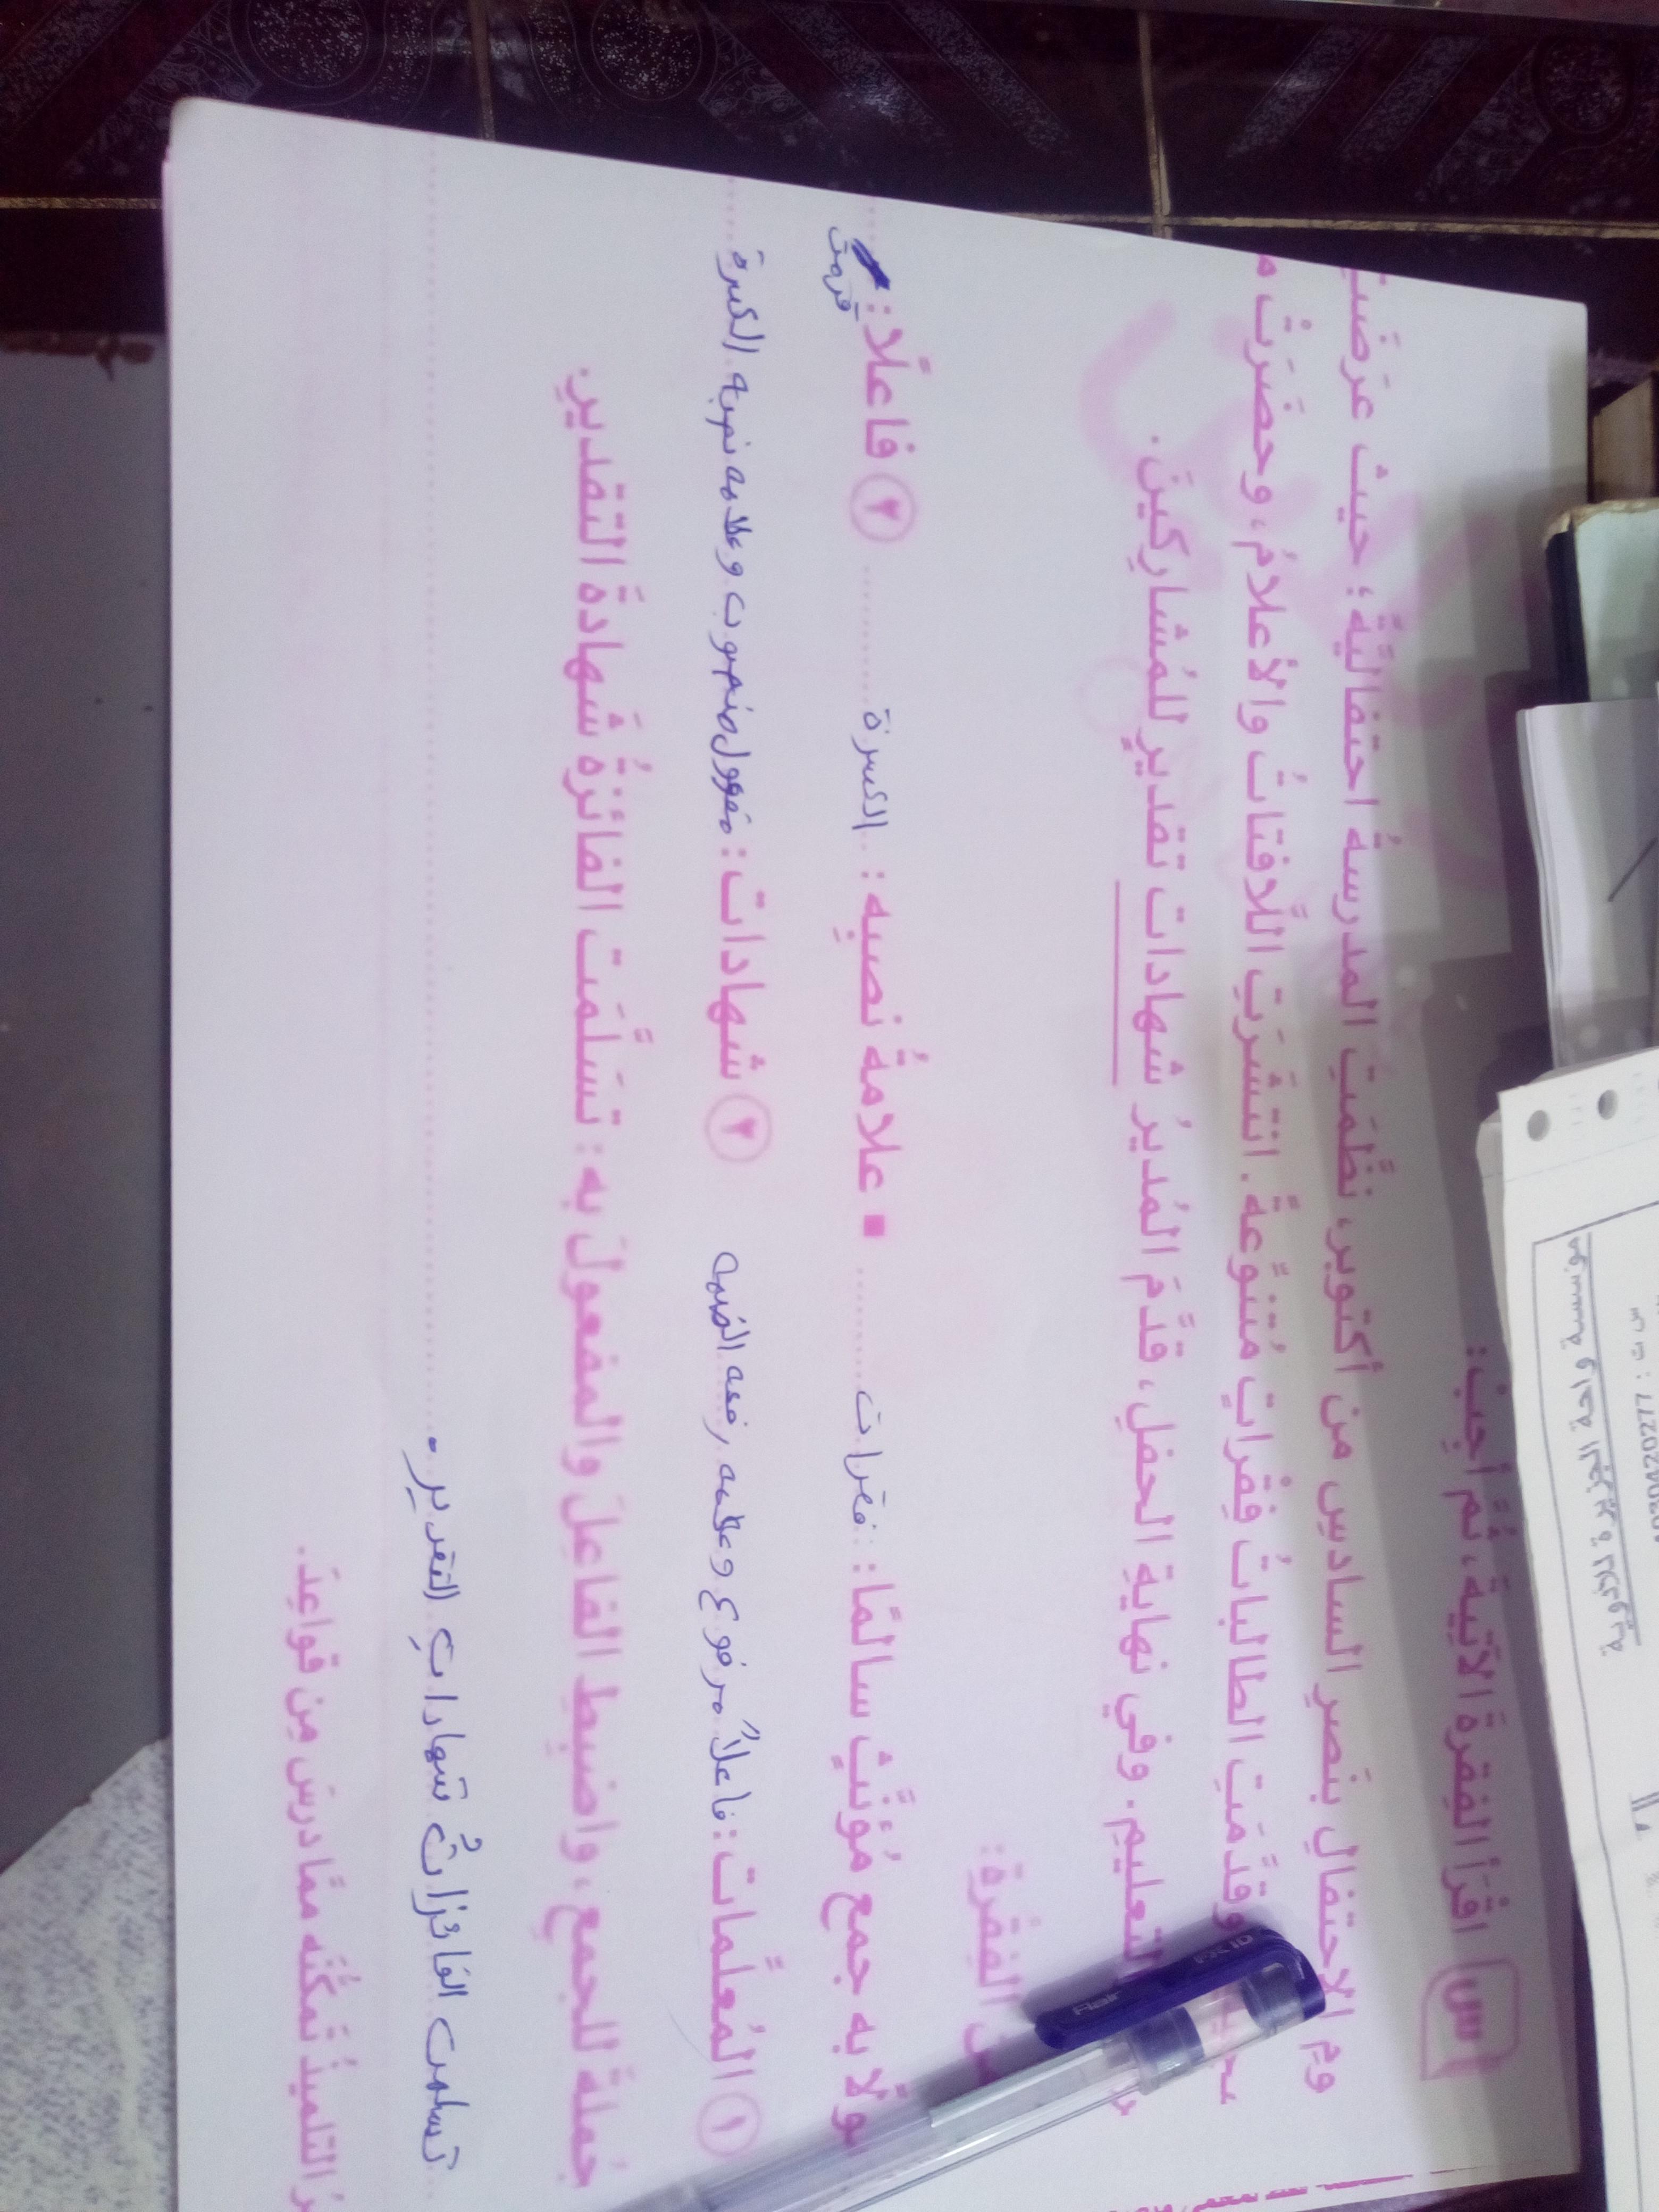 س اقرأ الفقرة الآتية، ثُمَّ أجب:
وم الاحتفالِ بنصرِ السادسِ من أكتوبر، نظَّمَتِ المدرسةُ احتفاليَّةً؛ حيث عرَضَت
وقدَّمَتِ الطالباتُ فِقْراتٍ مُتنوِّعةً. انتشَرَتِ اللَّافتاتُ والأعلامُ، وحضَرَتْ م
التعليمِ. وفي نهايةِ الحفلِ، قدَّمَ المُديرُ شهادات تقديرٍ للمُشارِكينَ.
الفِقْرةِ:
ولًا به جمع مُؤنَّثٍ سالمًا: فقرات ■ علامةُ نصبِه: الكسرة ٣ فاعلًا: قدمت
١ المُعلِّمات: فاعلاً مرفوع وعلامه رفعه الضمه ٢ شهادات: مفعول منصوب وعلامه نصبه الكسرة
جُملةً للجمعِ، واضبِطِ الفاعلَ والمفعولَ به: تسَلَّمَت الفائزةُ شَهادةَ التقديرِ.
تسلمت الفائزاتُ شهاداتِ التقديرِ.
التلميذُ تَمكُّنَه ممَّا درسَ مِن قواعِدَ.
مؤسسة واحة الجزيرة
س ت :